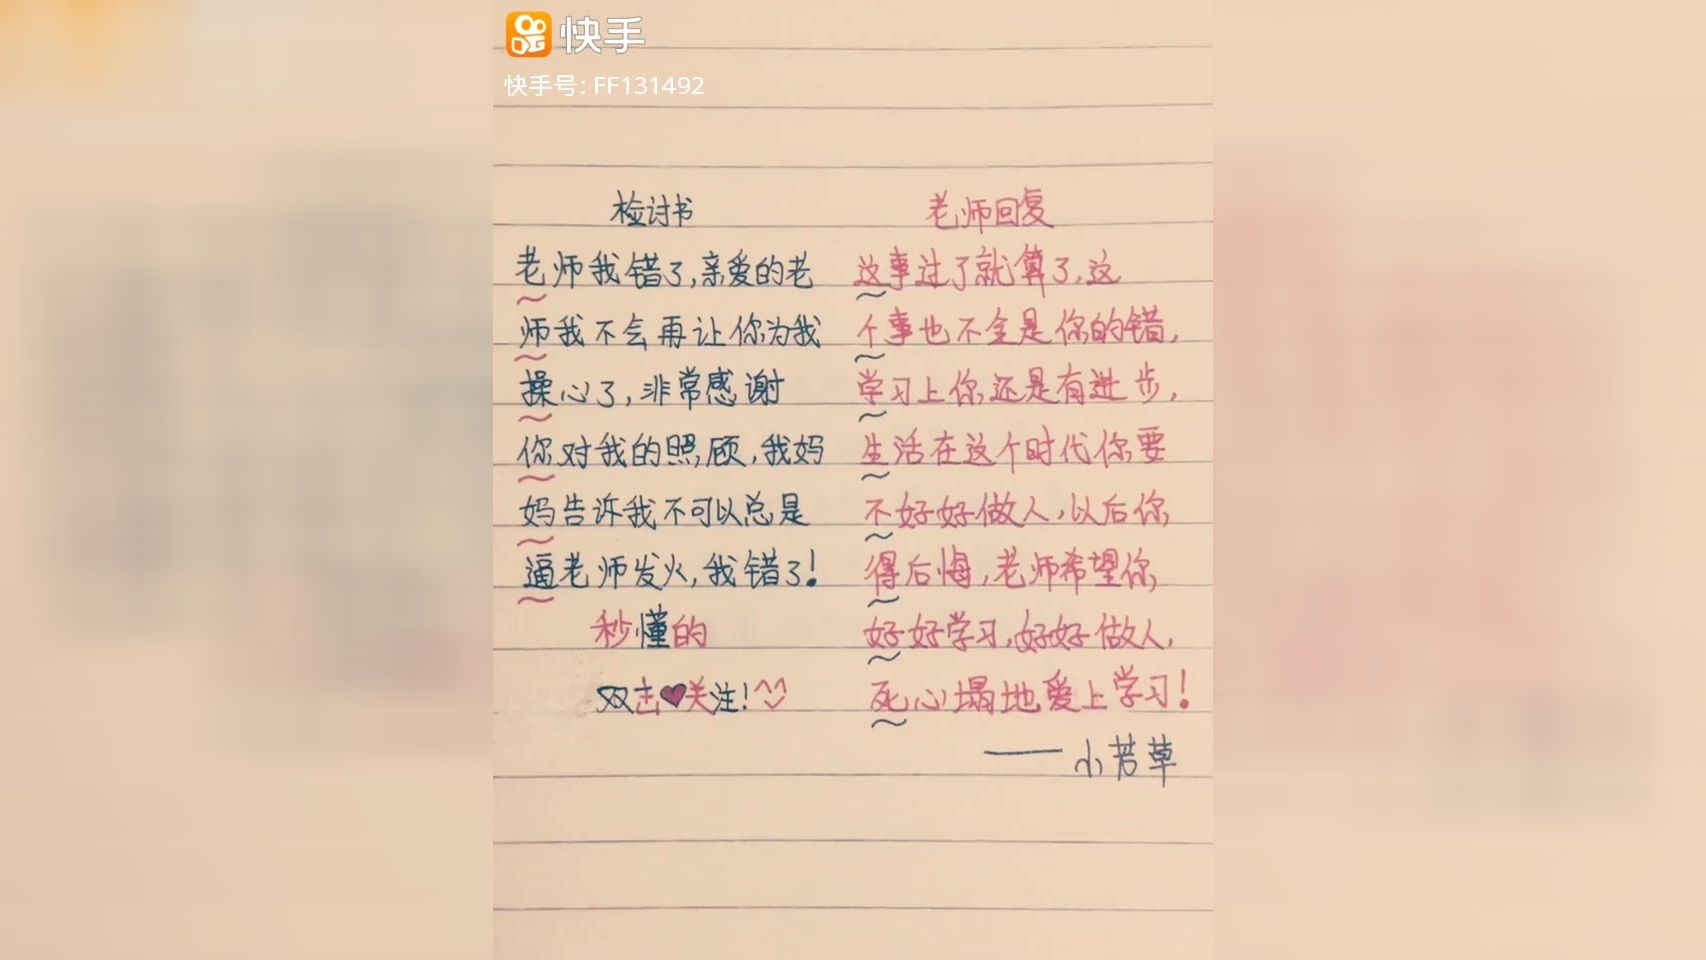 快手
快手号: FF131492
检讨书
老师我错了,亲爱的老
师我不会再让你为我
操心了,非常感谢
你对我的照顾,我妈
妈告诉我不可以总是
逼老师发火,我错了!
秒懂的
双击❤关注!^^
老师回复
这事过了就算了,这
个事也不全是你的错,
学习上你还是有进步,
生活在这个时代你要
不好好做人,以后你
得后悔,老师希望你
好好学习,好好做人,
死心塌地爱上学习!
——小芳草